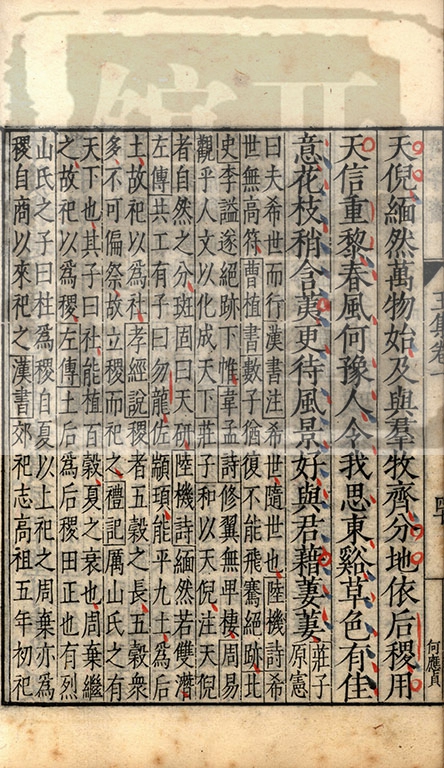 天倪緬然萬物始及與羣牧齊分地依后稷用
天信重黎春風何豫人令我思東谿草色有佳
意花枝稍含荑更待風景好與君藉萋萋莊子原憲
曰夫希世而行漢書注希世隨世也陸機詩希
世無高符曹植書數子猶復不能飛騫絕跡北
史李謐遂絕跡下帷韋孟詩修翼無卑棲周易
觀乎人文以化成天下莊子和以天倪注天倪
者自然之分班固曰天研陸機詩緬然若雙潛
左傳共工有子曰勿龍佐顓頊能平九土爲后
土故祀以爲社孝經說稷者五穀之長五穀衆
多不可偏祭故立稷而祀之禮記厲山氏之有
天下也其子曰社能植百穀夏之衰也周棄繼
之故祀以爲稷左傳土后爲后稷田正也有烈
山氏之子曰柱爲稷自夏以上祀之周棄亦爲
稷自商以來祀之漢書郊祀志高祖五年初祀